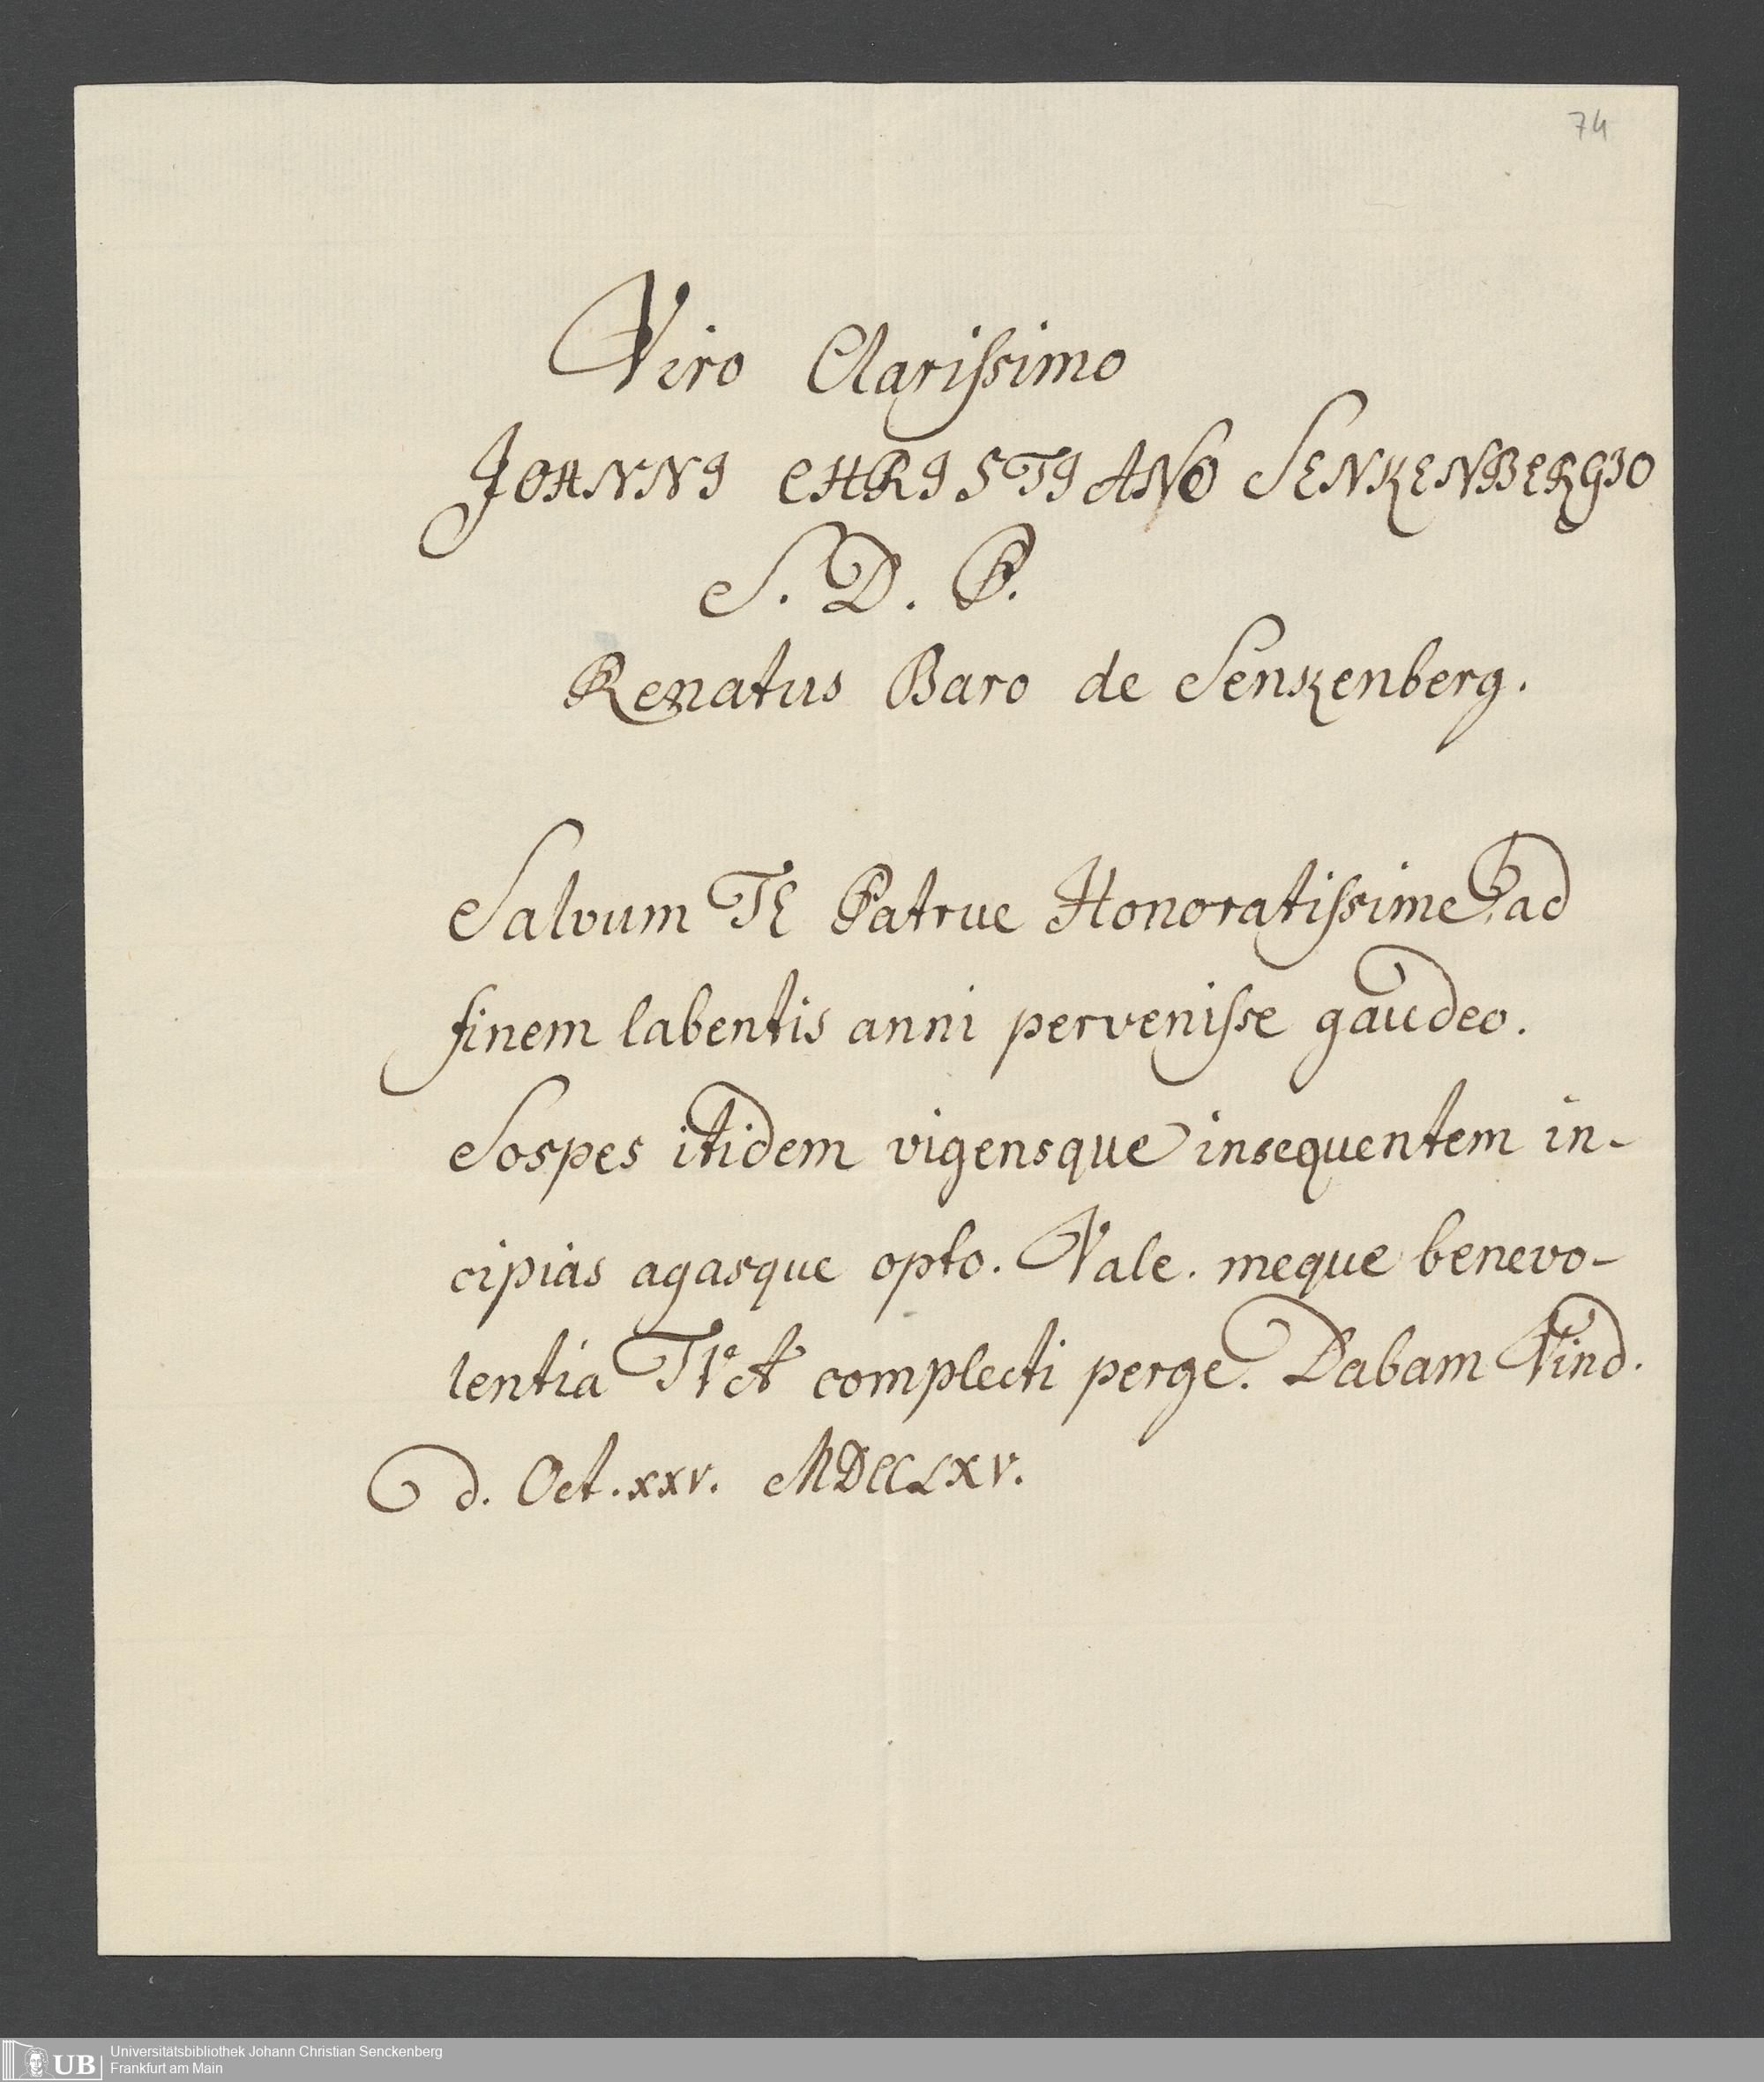 74
Viro Clarissimo
JOANNI CHRISTIANO SENKENBERGIO
S. D. P.
Renatus Baro de Senkenberg.
Salvum TE Patrue Honoratissime! ad
finem labentis anni pervenisse gaudeo.
Sospes itidem vigensque insequentem in-
cipias agasque opto. Vale. meque benevo-
lentia TVA complecti perge. Dabam Vind.
d. Oct. xxv. MDCCLXV.
UB Universitätsbibliothek Johann Christian Senckenberg
Frankfurt am Main